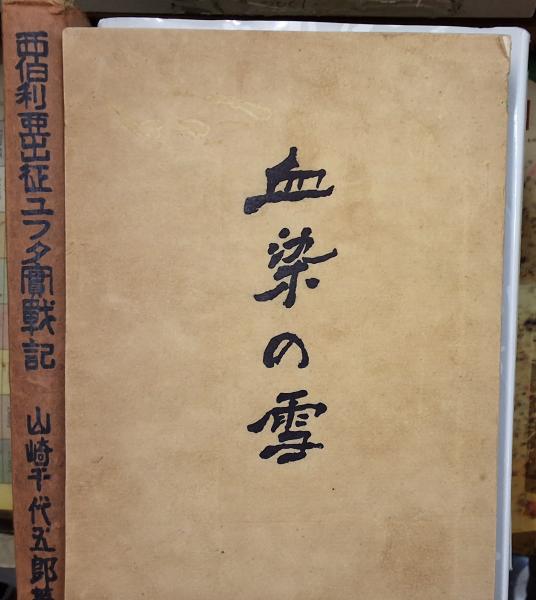 血染の雪
西伯利亜出征ユフタ實戰記 山崎千代五郎著